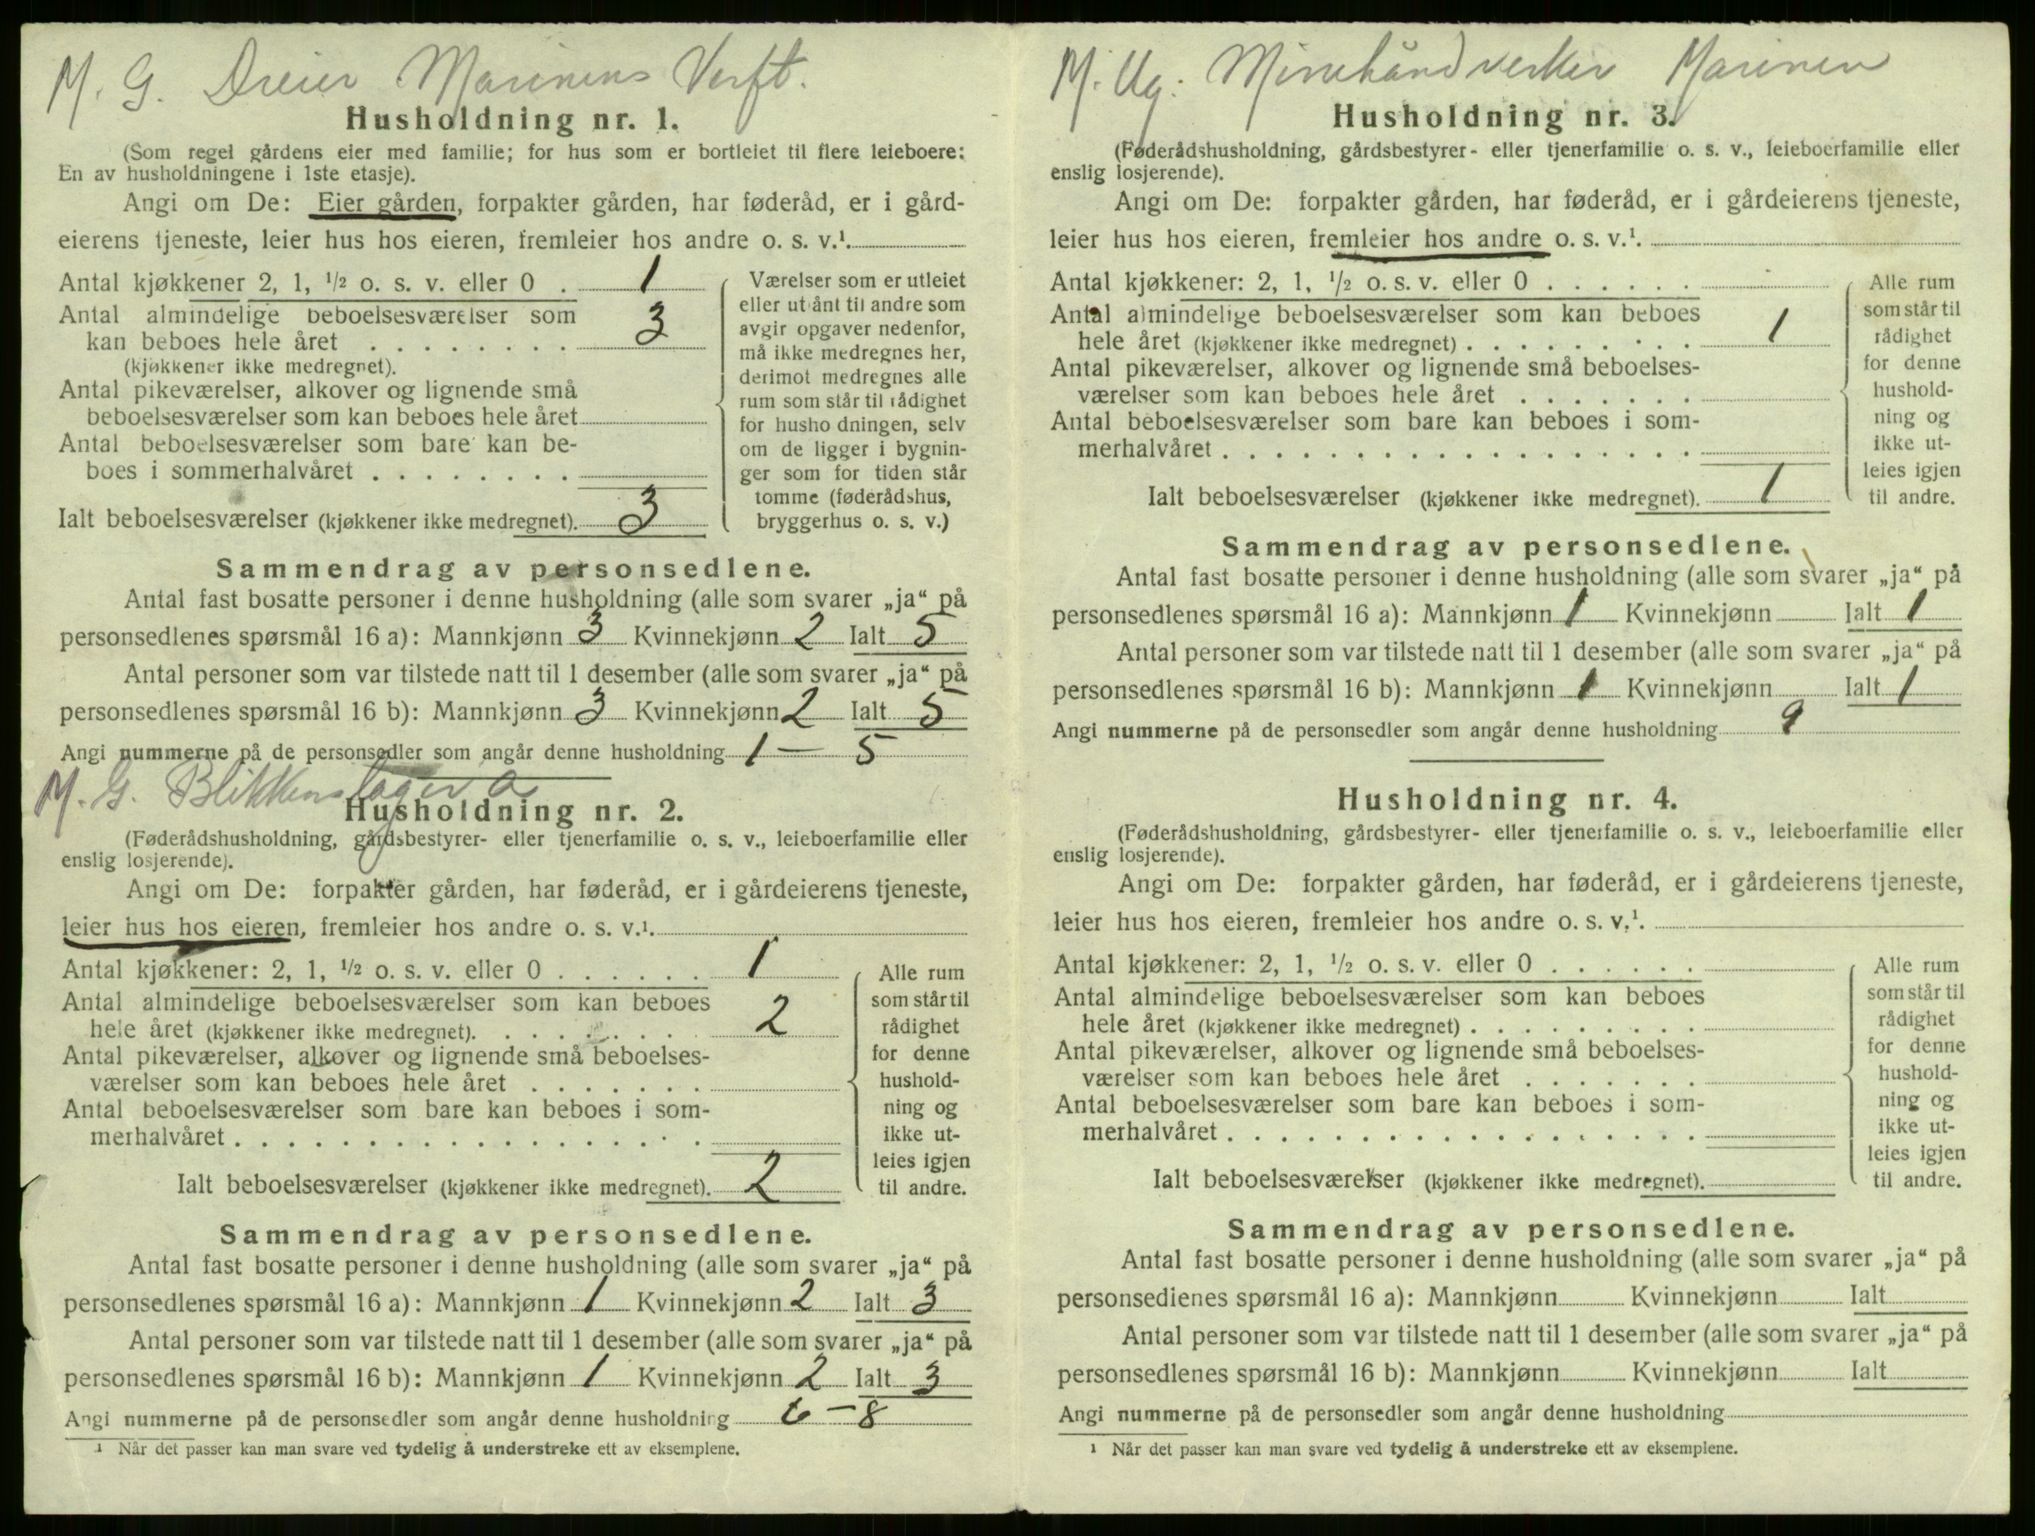 M. G. Dreier Marinens Verft.
Husholdning nr. 1.
(Som regel gårdens eier med familie; for hus som er bortleiet til flere leieboere:
En av husholdningene i 1ste etasje).
Angi om De: Eier gården, forpakter gården, har føderåd, er i gård-
eierens tjeneste, leier hus hos eieren, fremleier hos andre o. s. v.¹.
Antal kjøkkener 2, 1, ½ o. s. v. eller 0 . 1
Antal almindelige beboelsesværelser som
kan beboes hele året . . . . . . . . 3
(kjøkkener ikke medregnet).
Antal pikeværelser, alkover og lignende små
beboelsesværelser som kan beboes hele året
Antal beboelsesværelser som bare kan be-
boes i sommerhalvåret . . . . . . . .
Ialt beboelsesværelser (kjøkkener ikke medregnet). 3
Værelser som er utleiet
eller utlånt til andre som
avgir opgaver nedenfor,
må ikke medregnes her,
derimot medregnes alle
rum som står til rådighet
for husholdningen, selv
om de ligger i bygnin-
ger som for tiden står
tomme (føderådshus,
bryggerhus o. s. v.)
Sammendrag av personsedlene.
Antal fast bosatte personer i denne husholdning (alle som svarer „ja“ på
personsedlenes spørsmål 16 a): Mannkjønn 3 Kvinnekjønn 2 Ialt 5
Antal personer som var tilstede natt til 1 desember (alle som svarer „ja“ på
personsedlenes spørsmål 16 b): Mannkjønn 3 Kvinnekjønn 2 Ialt 5
Angi nummerne på de personsedler som angår denne husholdning 1 — 5
M. G. Blikkenslager a
Husholdning nr. 2.
(Føderådshusholdning, gårdsbestyrer- eller tjenerfamilie o. s. v., leieboerfamilie eller
enslig losjerende).
Angi om De: forpakter gården, har føderåd, er i gårdeierens tjeneste,
leier hus hos eieren, fremleier hos andre o. s. v.¹.
Antal kjøkkener: 2, 1, ½ o. s. v. eller 0 . . . . . . 1
Antal almindelige beboelsesværelser som kan beboes
hele året (kjøkkener ikke medregnet). . . . . . . . . 2
Antal pikeværelser, alkover og lignende små beboelses-
værelser som kan beboes hele året . . . . . . .
Antal beboelsesværelser som bare kan beboes i som-
merhalvåret . . . . . . . . . . . . . . . . . .
Ialt beboelsesværelser (kjøkkener ikke medregnet). 2
Alle rum
som står til
rådighet
for denne
hushold-
ning og
ikke ut-
leies igjen
til andre.
Sammendrag av personsedlene.
Antal fast bosatte personer i denne husholdning (alle som svarer „ja“ på
personsedlenes spørsmål 16 a): Mannkjønn 1 Kvinnekjønn 2 Ialt 3
Antal personer som var tilstede natt til 1 desember (alle som svarer „ja“ på
personsedlenes spørsmål 16 b): Mannkjønn 1 Kvinnekjønn 2 Ialt 3
Angi nummerne på de personsedler som angår denne husholdning 6 – 8
¹ Når det passer kan man svare ved tydelig å understreke ett av eksemplene.
M. Ug. Minehåndverker Marinen
Husholdning nr. 3.
(Føderådshusholdning, gårdsbestyrer- eller tjenerfamilie o. s. v., leieboerfamilie eller
enslig losjerende).
Angi om De: forpakter gården, har føderåd, er i gårdeierens tjeneste,
leier hus hos eieren, fremleier hos andre o. s. v.¹.
Antal kjøkkener: 2, 1, ½ o. s. v. eller 0 . . . . . .
Antal almindelige beboelsesværelser som kan beboes
hele året (kjøkkener ikke medregnet) . . . . . . . . . 1
Antal pikeværelser, alkover og lignende små beboelses-
værelser som kan beboes hele året . . . . . . .
Antal beboelsesværelser som bare kan beboes i som-
merhalvåret . . . . . . . . . . . . . . . . . .
Ialt beboelsesværelser (kjøkkener ikke medregnet). 1
Alle rum
som står til
rådighet
for denne
hushold-
ning og
ikke ut-
leies igjen
til andre.
Sammendrag av personsedlene.
Antal fast bosatte personer i denne husholdning (alle som svarer „ja“ på
personsedlenes spørsmål 16 a): Mannkjønn 1 Kvinnekjønn Ialt 1
Antal personer som var tilstede natt til 1 desember (alle som svarer „ja“ på
personsedlenes spørsmål 16 b): Mannkjønn 1 Kvinnekjønn Ialt 1
Angi nummerne på de personsedler som angår denne husholdning 9
Husholdning nr. 4.
(Føderådshusholdning, gårdsbestyrer- eller tjenerfamilie o. s. v., leieboerfamilie eller
enslig losjerende).
Angi om De: forpakter gården, har føderåd, er i gårdeierens tjeneste,
leier hus hos eieren, fremleier hos andre o. s. v.¹.
Antal kjøkkener: 2, 1, ½ o. s. v. eller 0 . . . . . .
Antal almindelige beboelsesværelser som kan beboes
hele året (kjøkkener ikke medregnet) . . . . . . . . .
Antal pikeværelser, alkover og lignende små beboelses-
værelser som kan beboes hele året . . . . . . .
Antal beboelsesværelser som bare kan beboes i som-
merhalvåret . . . . . . . . . . . . . . . . . .
Ialt beboelsesværelser (kjøkkener ikke medregnet).
Alle rum
som står til
rådighet
for denne
hushold-
ning og
ikke ut-
leies igjen
til andre.
Sammendrag av personsedlene.
Antal fast bosatte personer i denne husholdning (alle som svarer „ja“ på
personsedlenes spørsmål 16 a): Mannkjønn Kvinnekjønn Ialt
Antal personer som var tilstede natt til 1 desember (alle som svarer „ja“ på
personsedlenes spørsmål 16 b): Mannkjønn Kvinnekjønn Ialt
Angi nummerne på de personsedler som angår denne husholdning
¹ Når det passer kan man svare ved tydelig å understreke ett av eksemplene.